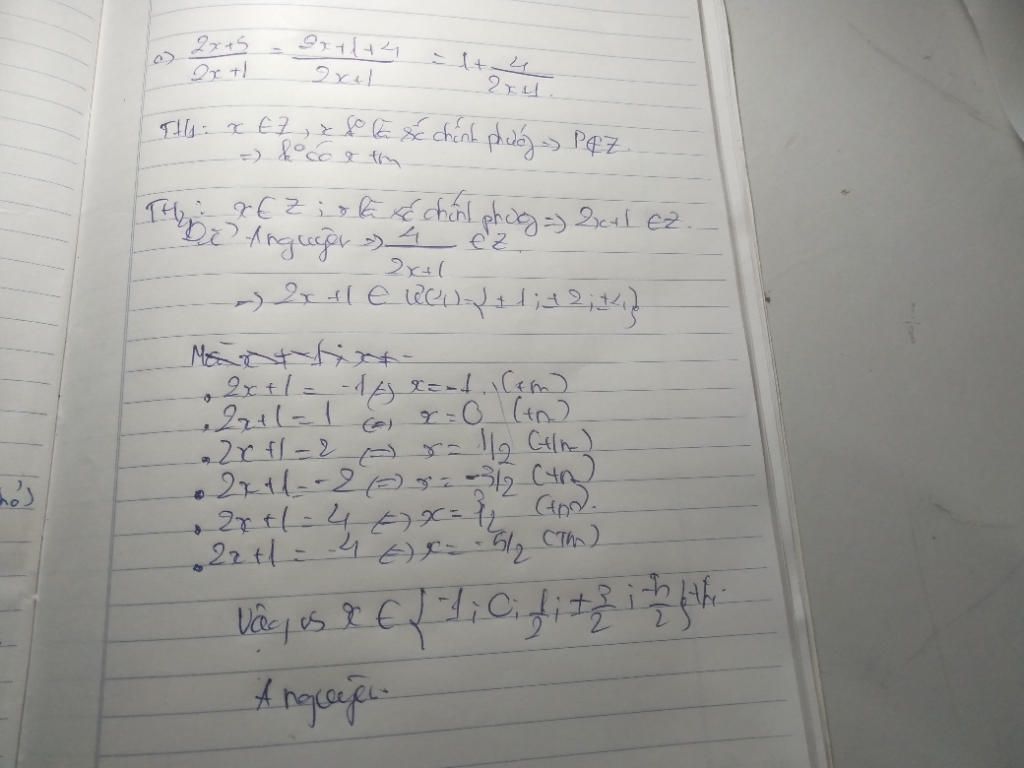 a) 2x+5/2x+1 = 2x+1+4/2x+1 = 1 + 4/2x+1.
TH1: x ∈ Z, x ko là số chính phương => P∉Z
=> ko có x tm
TH2: x ∈ Z ; x là số chính phương => 2x+1 ∈ Z.
Để A nguyên => 4/2x+1 ∈ Z
=> 2x+1 ∈ Ư(4)={±1;±2;±4}
. 2x+1 = -1 <=> x = -1. (tm)
. 2x+1 = 1 <=> x = 0 (tm)
. 2x+1 = 2 <=> x = 1/2 (tm)
. 2x+1 = -2 <=> x = -3/2 (tm)
. 2x+1 = 4 <=> x = 3/2 (tm).
. 2x+1 = -4 <=> x = -5/2 (tm)
Vậy, x ∈ {-1; 0; 1/2; ±3/2; -5/2} thì
A nguyên.